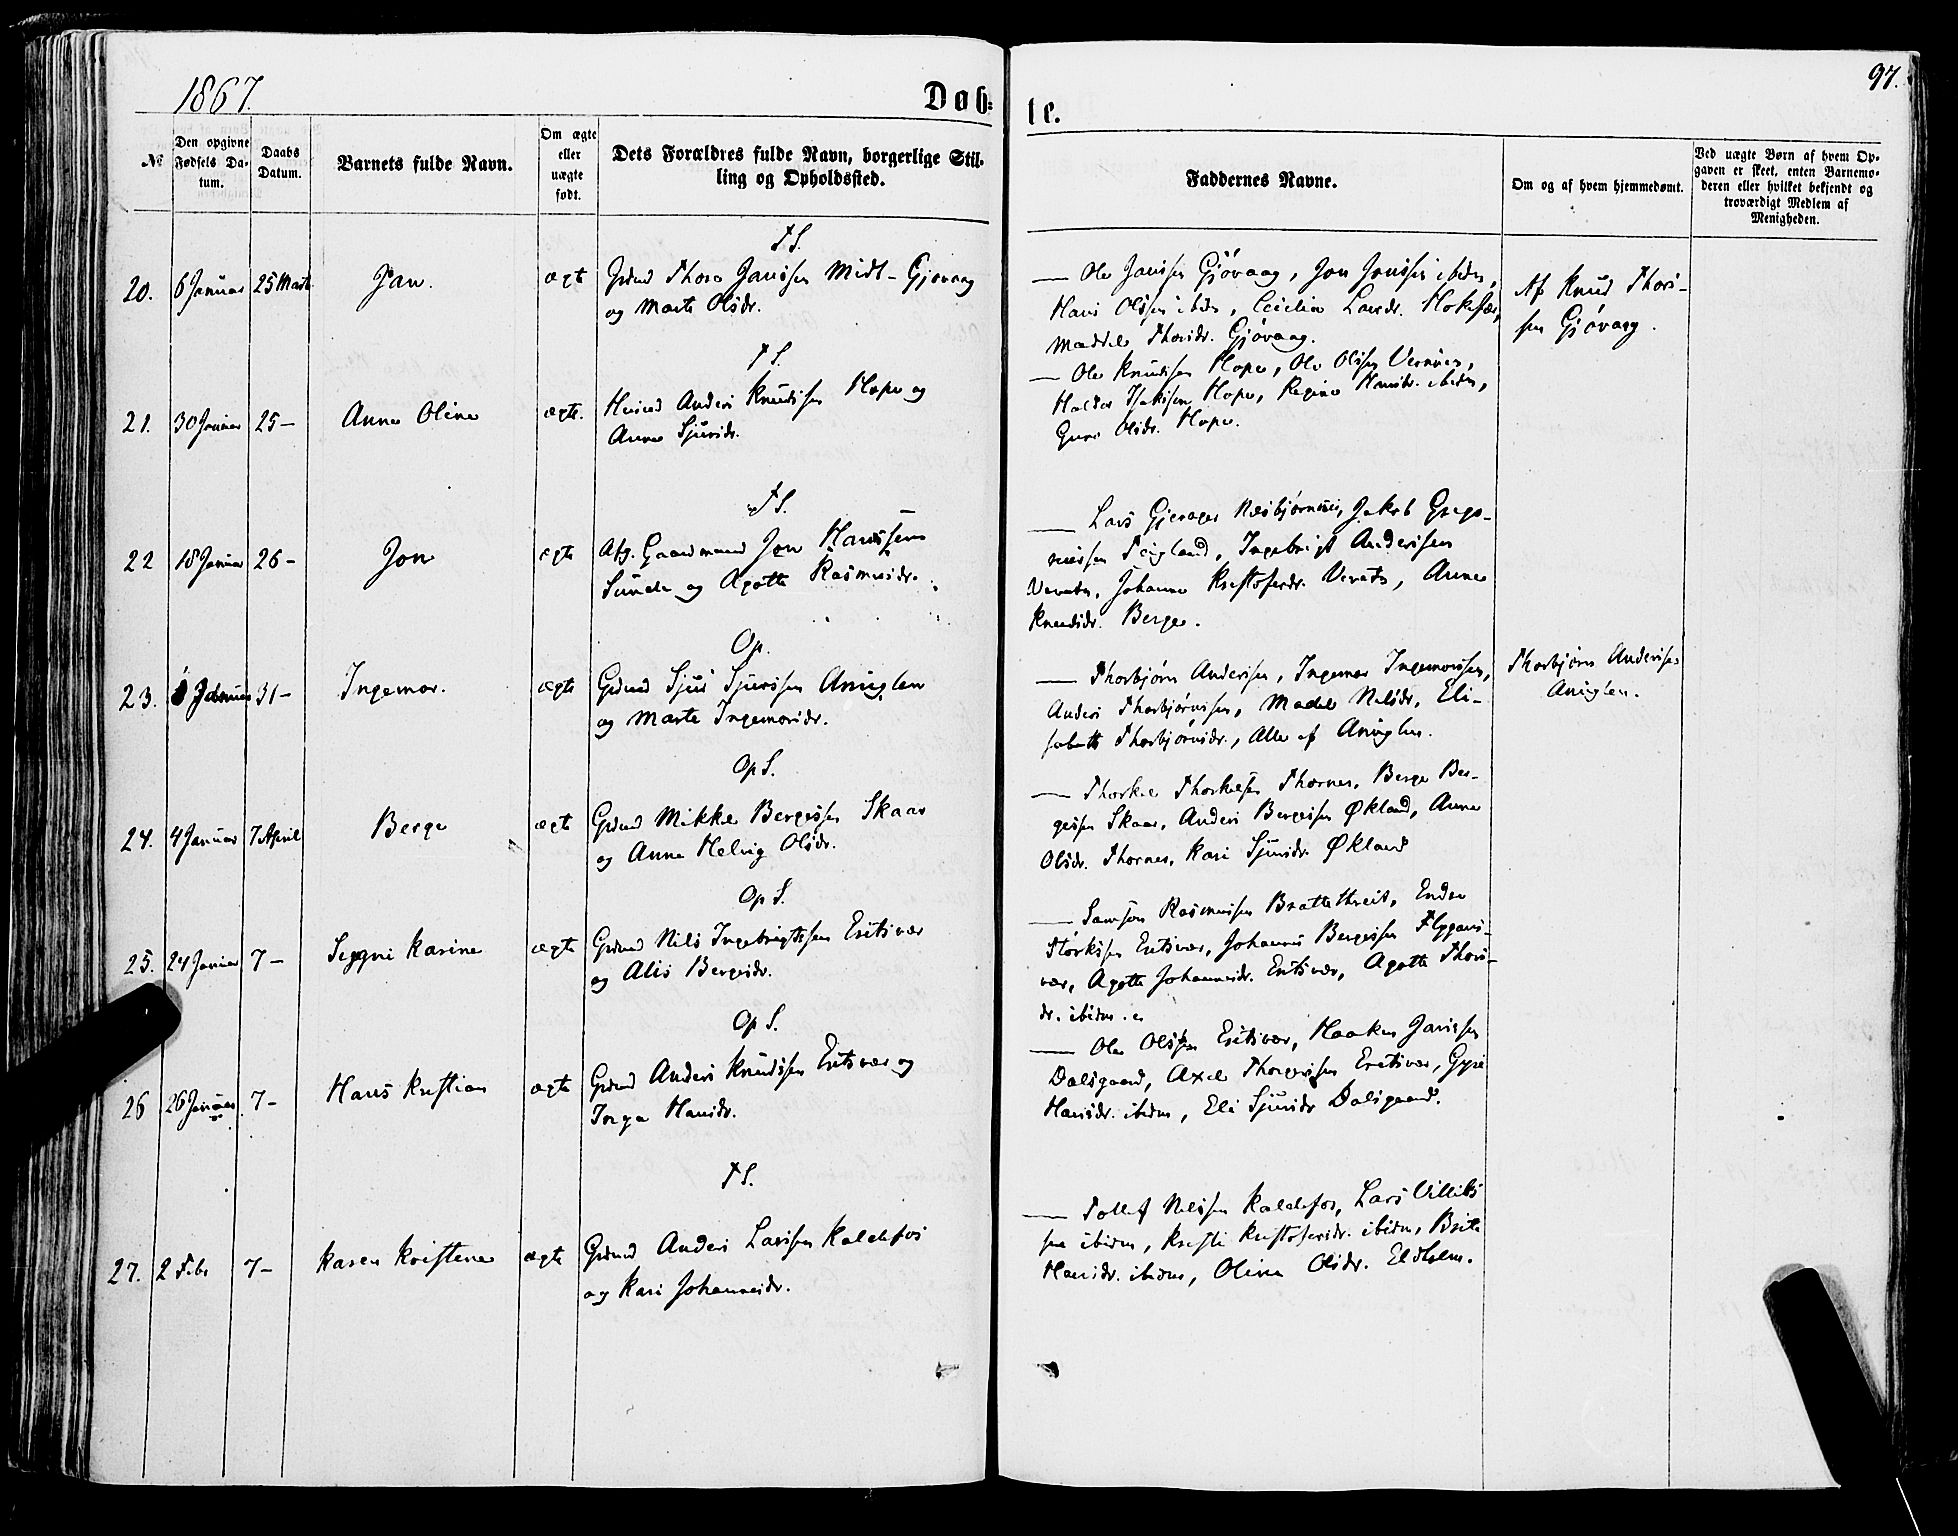 1867.
Døb-
te.
97.
№
Den opgivne Fødsels Datum.
Daabs Datum.
Barnets fulde Navn.
Om ægte eller uægte født.
Dets Forældres fulde Navn, borgerlige Stilling og Opholdssted.
Faddernes Navne.
Om og af hvem hjemmedøbt.
Ved uægte Børn af hvem Opgaven er skeet, enten Barnemoderen eller hvilket bekjendt og troværdigt Medlem af Menigheden.
T S.
20. 6 Januar 25 Marts Jan. ægt Grdmd Thore Janssen Midt-Gjøvaag
og Marte Olsdr.
— Ole Janssen Gjøvaag, Jon Jonssen ibidm,
Hans Olssen ibidm, Cecilia Larsdr.
Thorsdr. Gjøvaag.
Af Knud Thors-
sen Gjøvaag.
T S.
21. 30 Januar 25 — Anna Oline ægte. Anders Knudssen Hope og
Anna Sjursdr.
— Ole Knudssen Hope, Ole Olssen
Haldor Isakssen Hope, Regine Hansdr. ibidm,
Guro Olsdr. Hope.
T S.
22 18 Januar 26 — Jon ægte Afg. Gaardmand Jon Hanssen
Sunde og Agatte Rasmusdr.
— Lars Gjerager Næsbjørnsnes, Jakob Grego-
riussen Teigland, Ingebrigt Anderssen
Johanna Kristofersdr. Anna
Knudsdr. Berge.
Op.
23. Januar 31 — Ingemor. ægte Grdmd Sjur Sjurssen Anuglen
og Marte Ingemorsdr.
— Thorbjørn Anderssen, Ingemor Ingemorssen,
Anders Thorbjørnssen, Madel Nilsdr, Eli-
sabeth Thorbjørnsdr., Alle af Anuglen.
Thorbjørn Anderssen
Anuglen.
Op S.
24. 4 Januar 7 April Berge ægte Grdmd Mikkel Bergessen Skaar
og Anna Helvig Olsdr.
— Thorkel Thorkelssen Thornes, Berge Ber-
gessen Skaar, Anders Bergessen Økland, Anna
Olsdr. Thornes, Kari Sjursdr. Økland
Op S.
25. 24 Januar 7 — Seggni Karine ægte Grdmd Nils Ingebrigtssen Eritsvær
og Alis Bergesdr.
— Samson Rasmussen Brattethveit, Endre
Størkssen Eritsvær, Johannes Bergessen Flyggans-
vær, Agotte Johannesdr. Eritsvær, Agotte Thors-
dr. ibidm.
Op S.
26 26 Januar 7 — Hans Kristian ægte Grdmd Anders Knudssen Eritsvær og
Inga Hansdr.
— Ole Olssen Eritsvær, Haaken Janssen
Dalsgaard, Axel Thorgerssen Eritsvær, Gyri
Hansdr. ibidm, Eli Sjursdr Dalsgaard.
T S.
27. 2 Febr 7 — Karen Kristena ægte Grdmd Anders Larssen Kaldefos
og Kari Johannesdr.
— Tollef Nilssen Kaldefos, Lars Villiks
sen ibidm, Kristi Kristofersdr. ibidm, Brita
Hansdr. ibidm, Olina Olsdr. Eldholm.